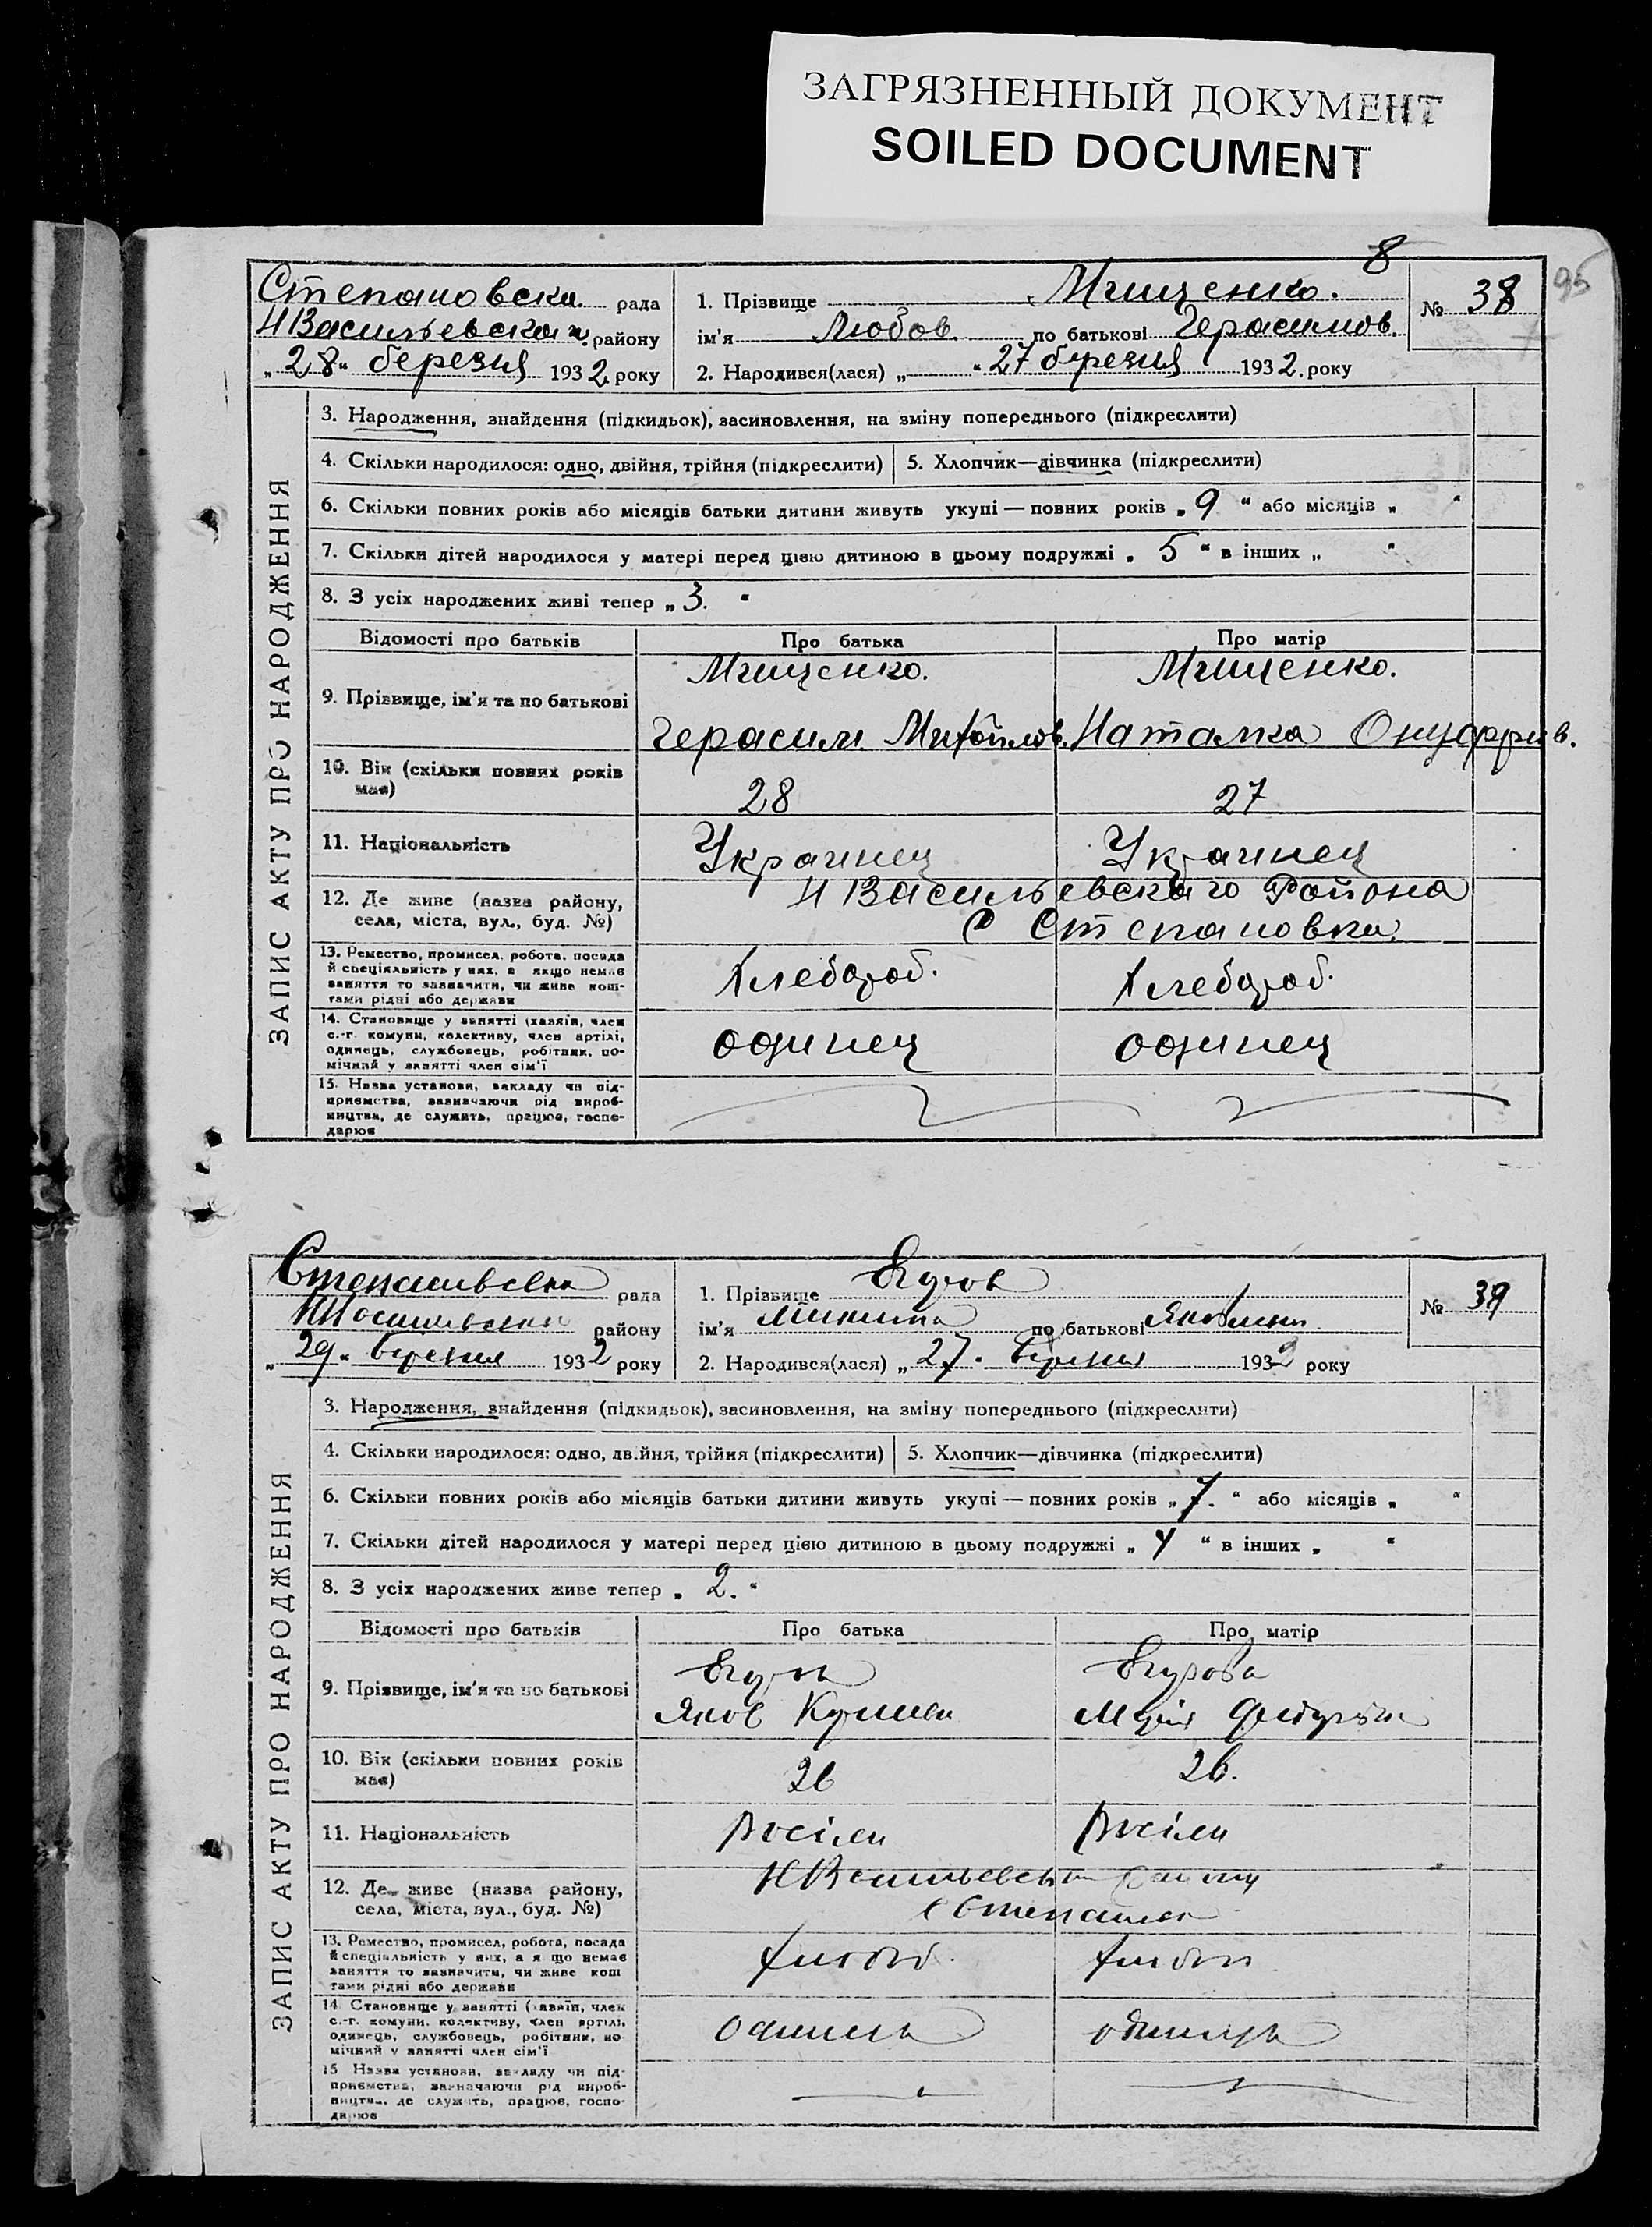 ЗАГРЯЗНЕННЫЙ ДОКУМЕНТ
SOILED DOCUMENT
8
95
Степановска рада
НВасильевская району
„28“ березня 1932 року
1. Прізвище Мищенко.
ім'я Любов по батькові Герасимов.
2. Народився(лася) „ “ 27 березня 1932. року
№ 38
ЗАПИС АКТУ ПРО НАРОДЖЕННЯ
3. Народження, знайдення (підкидьок), засиновлення, на зміну попереднього (підкреслити)
4. Скільки народилося: одно, двійня, трійня (підкреслити) 5. Хлопчик—дівчинка (підкреслити)
6. Скільки повних років або місяців батьки дитини живуть укупі — повних років „9“ або місяців „ “
7. Скільки дітей народилося у матері перед цією дитиною в цьому подружжі „5“ в інших „ “
8. З усіх народжених живі тепер „3.“
Відомості про батьків Про батька Про матір
9. Прізвище, ім'я та по батькові
Мищенко. Мищенко.
Герасим Михайлов. Наталка Онуффрив.
10. Вік (скільки повних років має)
28 27
11. Національність
Украинец Украинец
12. Де живе (назва району,
села, міста, вул., буд. №)
Н Васильевского Района
С Степановка.
13. Ремество, промисел, робота, посада
й спеціяльність у них, а якщо немає
заняття то зазначити, чи живе кош-
тами рідні або держави
Хлебороб. Хлебороб.
14. Становище у занятті (хазяїн, член
с.-г. комуни, колективу, член артілі,
одинець, службовець, робітник, по-
мічний у занятті член сім'ї
одинец одинец
15. Назва установи, закладу чи під-
приємства, зазначаючи рід вироб-
ництва, де служить, працює, госпо-
дарює
Степанивська рада
району
„29“ березня 1932 року
1. Прізвище Егуров
ім'я по батькові
2. Народився(лася) „27. березня 1932 року
№ 39
ЗАПИС АКТУ ПРО НАРОДЖЕННЯ
3. Народження, знайдення (підкидьок), засиновлення, на зміну попереднього (підкреслити)
4. Скільки народилося: одно, двійня, трійня (підкреслити) 5. Хлопчик—дівчинка (підкреслити)
6. Скільки повних років або місяців батьки дитини живуть укупі — повних років „7.“ або місяців „ “
7. Скільки дітей народилося у матері перед цією дитиною в цьому подружжі „4“ в інших „ “
8. З усіх народжених живе тепер „2.“
Відомості про батьків Про батька Про матір
9. Прізвище, ім'я та по батькові
Егуров Егурова
Яков
10. Вік (скільки повних років має)
26 26.
11. Національність
12. Де живе (назва району,
села, міста, вул., буд. №)
13. Ремество, промисел, робота, посада
й спеціяльність у них, а якщо немає
заняття то зазначити, чи живе кош
тами рідні або держави
14 Становище у занятті (хазяїн, член
с.-г. комуни, колективу, член артілі,
одинець, службовець, робітник, по
мічний у занятті член сім'ї
15 Назва установи, закладу чи під-
приємства, зазначаючи рід вироб-
ництва, де служить, працює, госпо-
дарює